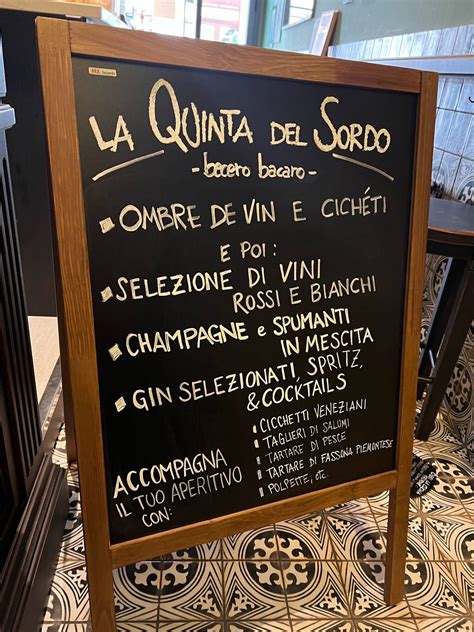 LA QUINTA DEL SORDO
- bacero bacaro -
OMBRE DE VIN E CICHÉTI
E POI :
SELEZIONE DI VINI
ROSSI E BIANCHI
CHAMPAGNE e SPUMANTI
IN MESCITA
GIN SELEZIONATI, SPRITZ,
& COCKTAILS
ACCOMPAGNA
IL TUO APERITIVO
CON:
CICCHETTI VENEZIANI
TAGLIERI DI SALUMI
TARTARE DI PESCE
TARTARE DI FASSONA PIEMONTESE
POLPETTE, etc.